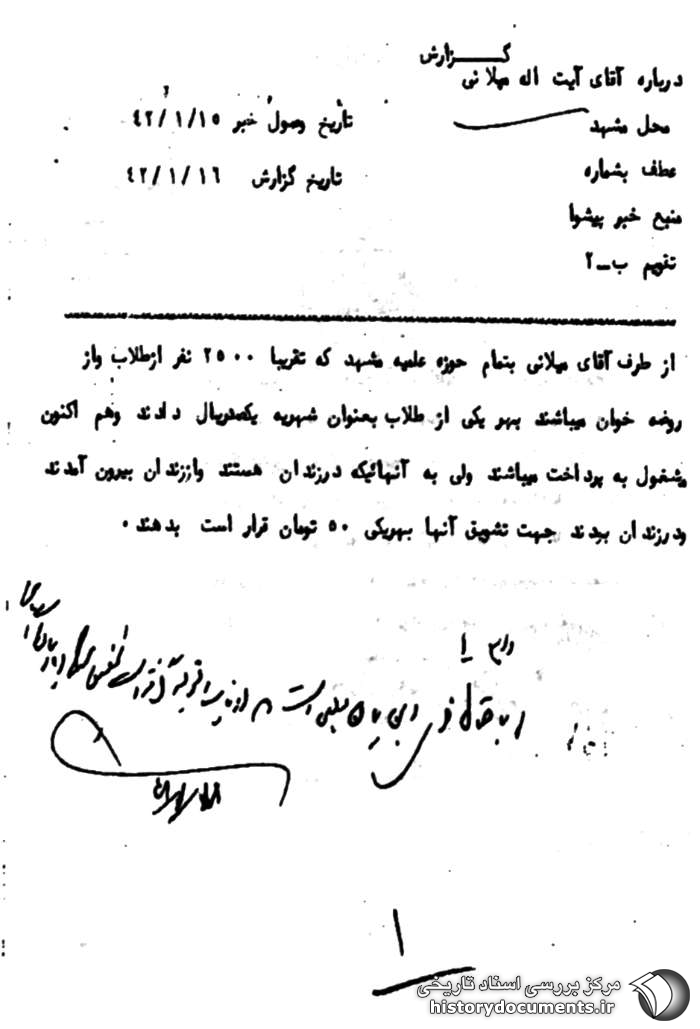 گزارش
درباره آقای آیت اله میلانی
محل مشهد
تاریخ وصول خبر ۴۲/۱/۱۵
عطف بشماره
تاریخ گزارش ۴۲/۱/۱۶
منبع خبر پیشوا
تقویم ب-۲
از طرف آقای میلانی بتمام حوزه علمیه مشهد که تقریبا ۲۵۰۰ نفر ازطلاب واز
روضه خوان میباشند بهر یکی از طلاب بعنوان شهریه یکصدریال دادند وهم اکنون
مشغول به پرداخت میباشند ولی به آنهائیکه درزندان هستند واززندان بیرون آمدند
ودرزندان بودند جهت تشویق آنها بهریکی ۵۰ تومان قرار است بدهند.
۱
مرکز بررسی اسناد تاریخی
historydocuments.ir